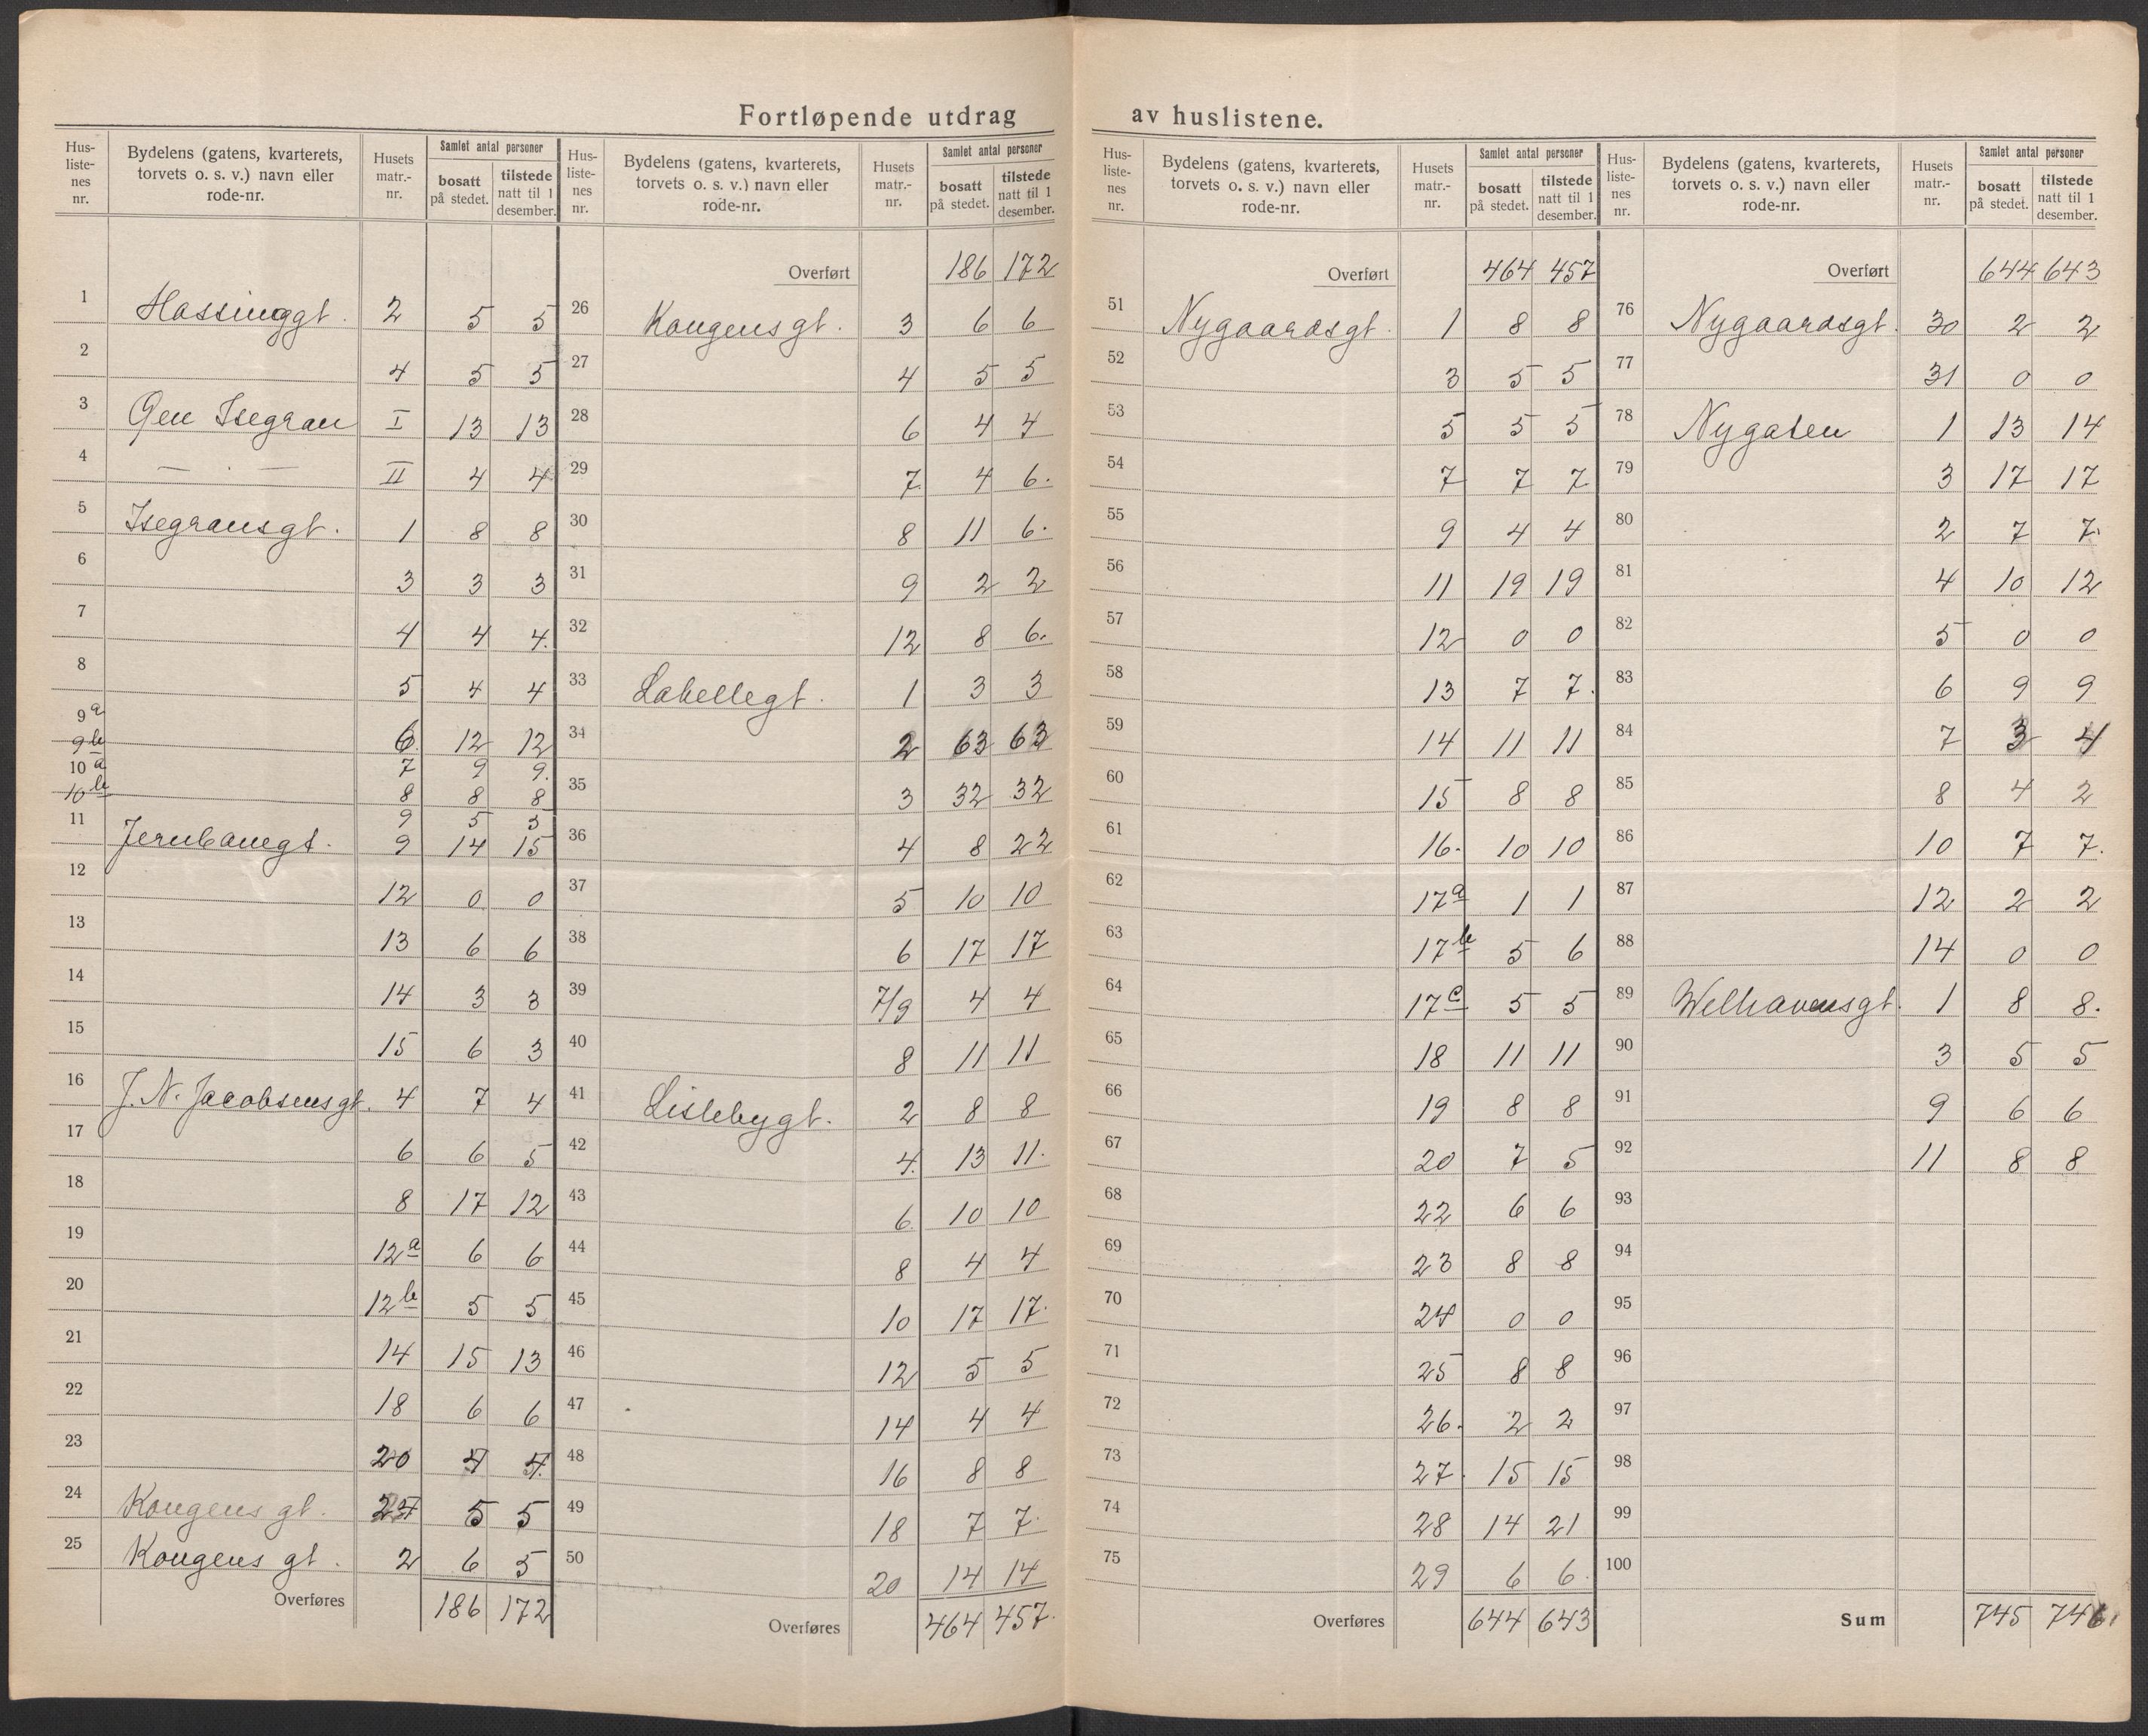 Fortløpende utdrag av huslistene.
Hus-listenes nr. | Bydelens (gatens, kvarterets, torvets o. s. v.) navn eller rode-nr. | Husets matr.-nr. | Samlet antal personer bosatt på stedet. | tilstede natt til 1 desember.
1 Hassinggt. 2 5 5
2 4 5 5
3 Gml Isegran I 13 13
4 — . — II 4 4
5 Isegransgt. 1 8 8
6 3 3 3
7 4 4 4.
8 5 4 4
9a 6. 12 12
9b 7 9 9.
10a 8 8 8
10b 9 5 5
11 Jernbanegt. 9 14 15
12 12 0 0
13 13 6 6
14 14 3 3
15 15 6 3
16 J. N. Jacobsensgt. 4 7 4
17 6 6 5
18 8 17 12
19 12a 6 6
20 12b 5 5
21 14 15 13
22 18 6 6
23 20 4 4.
24 Kongens gt. 5 5
25 Kongens gt. 2 6 5
Overføres 186 172
Hus-listenes nr. | Bydelens (gatens, kvarterets, torvets o. s. v.) navn eller rode-nr. | Husets matr.-nr. | Samlet antal personer bosatt på stedet. | tilstede natt til 1 desember.
Overført 186 172
26 Kongensgt. 3 6 6
27 4 5 5
28 6 4 4
29 7. 4 6.
30 8 11 6.
31 9 2 2
32 12 8 6.
33 Labellegt. 1 3 3
34 2 63 63
35 3 32 32
36 4 8 22
37 5 10 10
38 6 17 17
39 7/9 4 4
40 8 11 11
41 Lislebygt. 2 8 8
42 4. 13 11.
43 6. 10 10
44 8 4 4
45 10 17 17.
46 12 5 5
47 14 4 4
48 16 8 8
49 18 7 7.
50 20 14 14
Overføres 464 457.
Hus-listenes nr. | Bydelens (gatens, kvarterets, torvets o. s. v.) navn eller rode-nr. | Husets matr.-nr. | Samlet antal personer bosatt på stedet. | tilstede natt til 1 desember.
Overført 464 457
51 Nygaardsgt. 1 8 8
52 3 5 5
53 5 5 5
54 7 7 7
55 9 4 4
56 11 19 19
57 12 0 0
58 13 7 7.
59 14 11 11
60 15 8 8
61 16. 10 10
62 17a 1 1
63 17b 5 6
64 17c 5 5
65 18 11 11
66 19 8 8
67 20 7 5
68 22 6 6
69 23 8 8
70 24 0 0
71 25 8 8
72 26. 2 2
73 27. 15 15
74 28 14 21
75 29 6 6.
Overføres 644 643
Hus-listenes nr. | Bydelens (gatens, kvarterets, torvets o. s. v.) navn eller rode-nr. | Husets matr.-nr. | Samlet antal personer bosatt på stedet. | tilstede natt til 1 desember.
Overført 644 643
76 Nygaardsgt. 30 2 2
77 31 0 0
78 Nygaten 1 13 14
79 3 17 17
80 2 7 7.
81 4 10 12
82 5 0 0
83 6 9 9
84 7 3 4
85 8 4 2
86 10 7 7.
87 12 2 2
88 14 0 0
89 Welhavensgt. 1 8 8.
90 3 5 5
91 9 6 6
92 11 8 8
93
94
95
96
97
98
99
100
Sum 745 746.